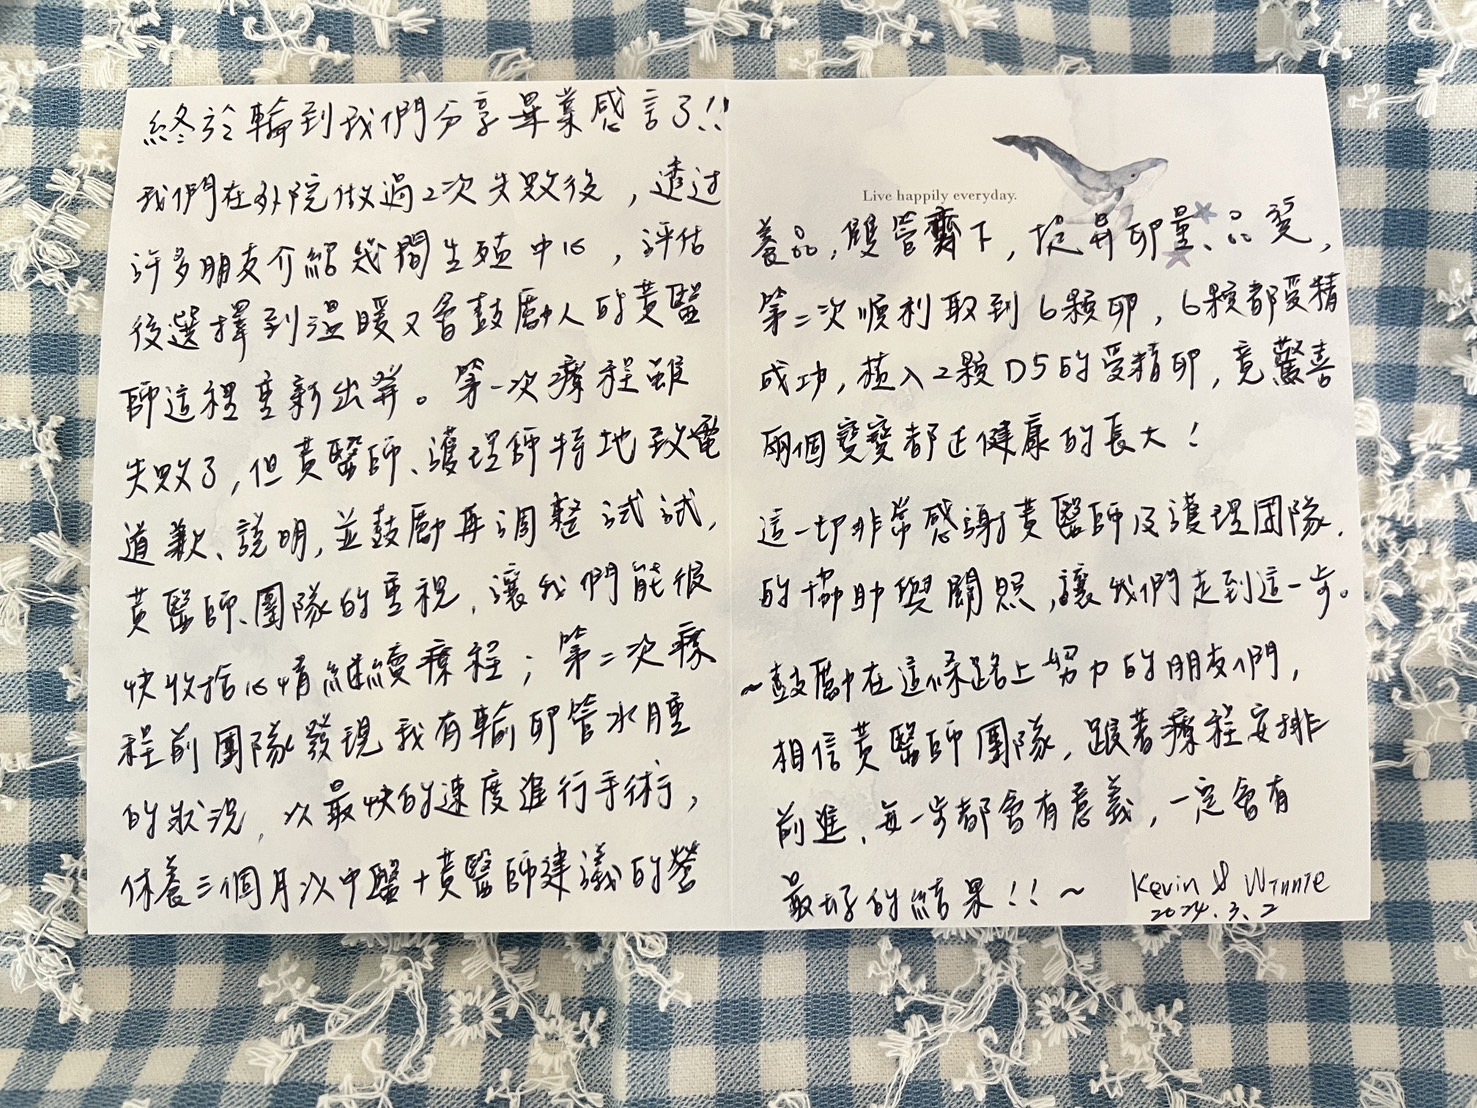 終於輪到我們分享畢業感言了!!
我們在外院做過2次失敗後，透过
許多朋友介紹幾間生殖中心，評估
後選擇到溫暖又會鼓勵人的黃醫
師這裡重新出發。第一次療程雖
失敗了，但黃醫師、護理師特地致電
道歉、說明，並鼓勵再調整試試，
黃醫師、團隊的重視，讓我們能很
快收拾心情繼續療程；第二次療
程前團隊發現我有輸卵管水腫
的狀況，以最快的速度進行手術，
休養三個月以中醫+黃醫師建議的營
Live happily everyday.
養品，雙管齊下，提昇卵量、品質，
第二次順利取到6顆卵，6顆都受精
成功，植入2顆D5的受精卵，竟驚喜
兩個寶寶都正健康的長大！
這一切非常感謝黃醫師及護理團隊，
的協助與關照，讓我們走到這一步。
~鼓勵在這條路上努力的朋友們，
相信黃醫師團隊，跟著療程安排
前進，每一步都會有意義，一定會有
最好的結果!!~ Kevin & Winnie
2024.3.2